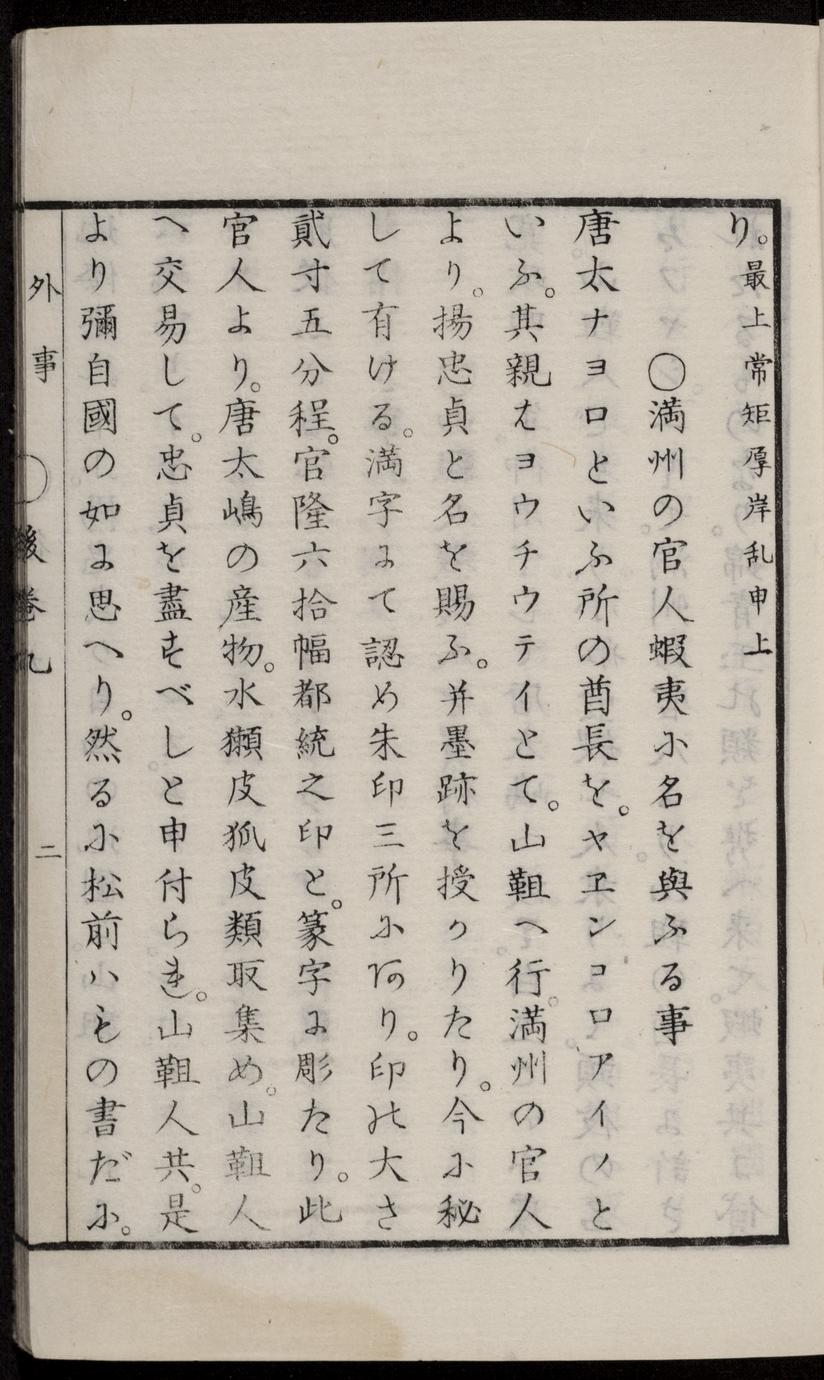 り。最上常矩厚岸乱申上
〇満州の官人蝦夷に名を與ふる事
唐太ナヨロといふ所の酋長を。ヤヱンコロアイノと
いふ。其親はヨウチウテイとて。山靼へ行。満州の官人
より。揚忠貞と名を賜ふ。并墨跡を授かりたり。今に秘
して有ける。満字にて認め朱印三所にあり。印の大さ
貳寸五分程。官隆六拾幅都統之印と。篆字に彫たり。此
官人より。唐太嶋の産物。水獺皮狐皮類取集め。山靼人
へ交易して。忠貞を盡すべしと申付られ。山靼人共。是
より彌自國の如に思へり。然るに松前ハもの書だに。
外事 〇後巻九 二